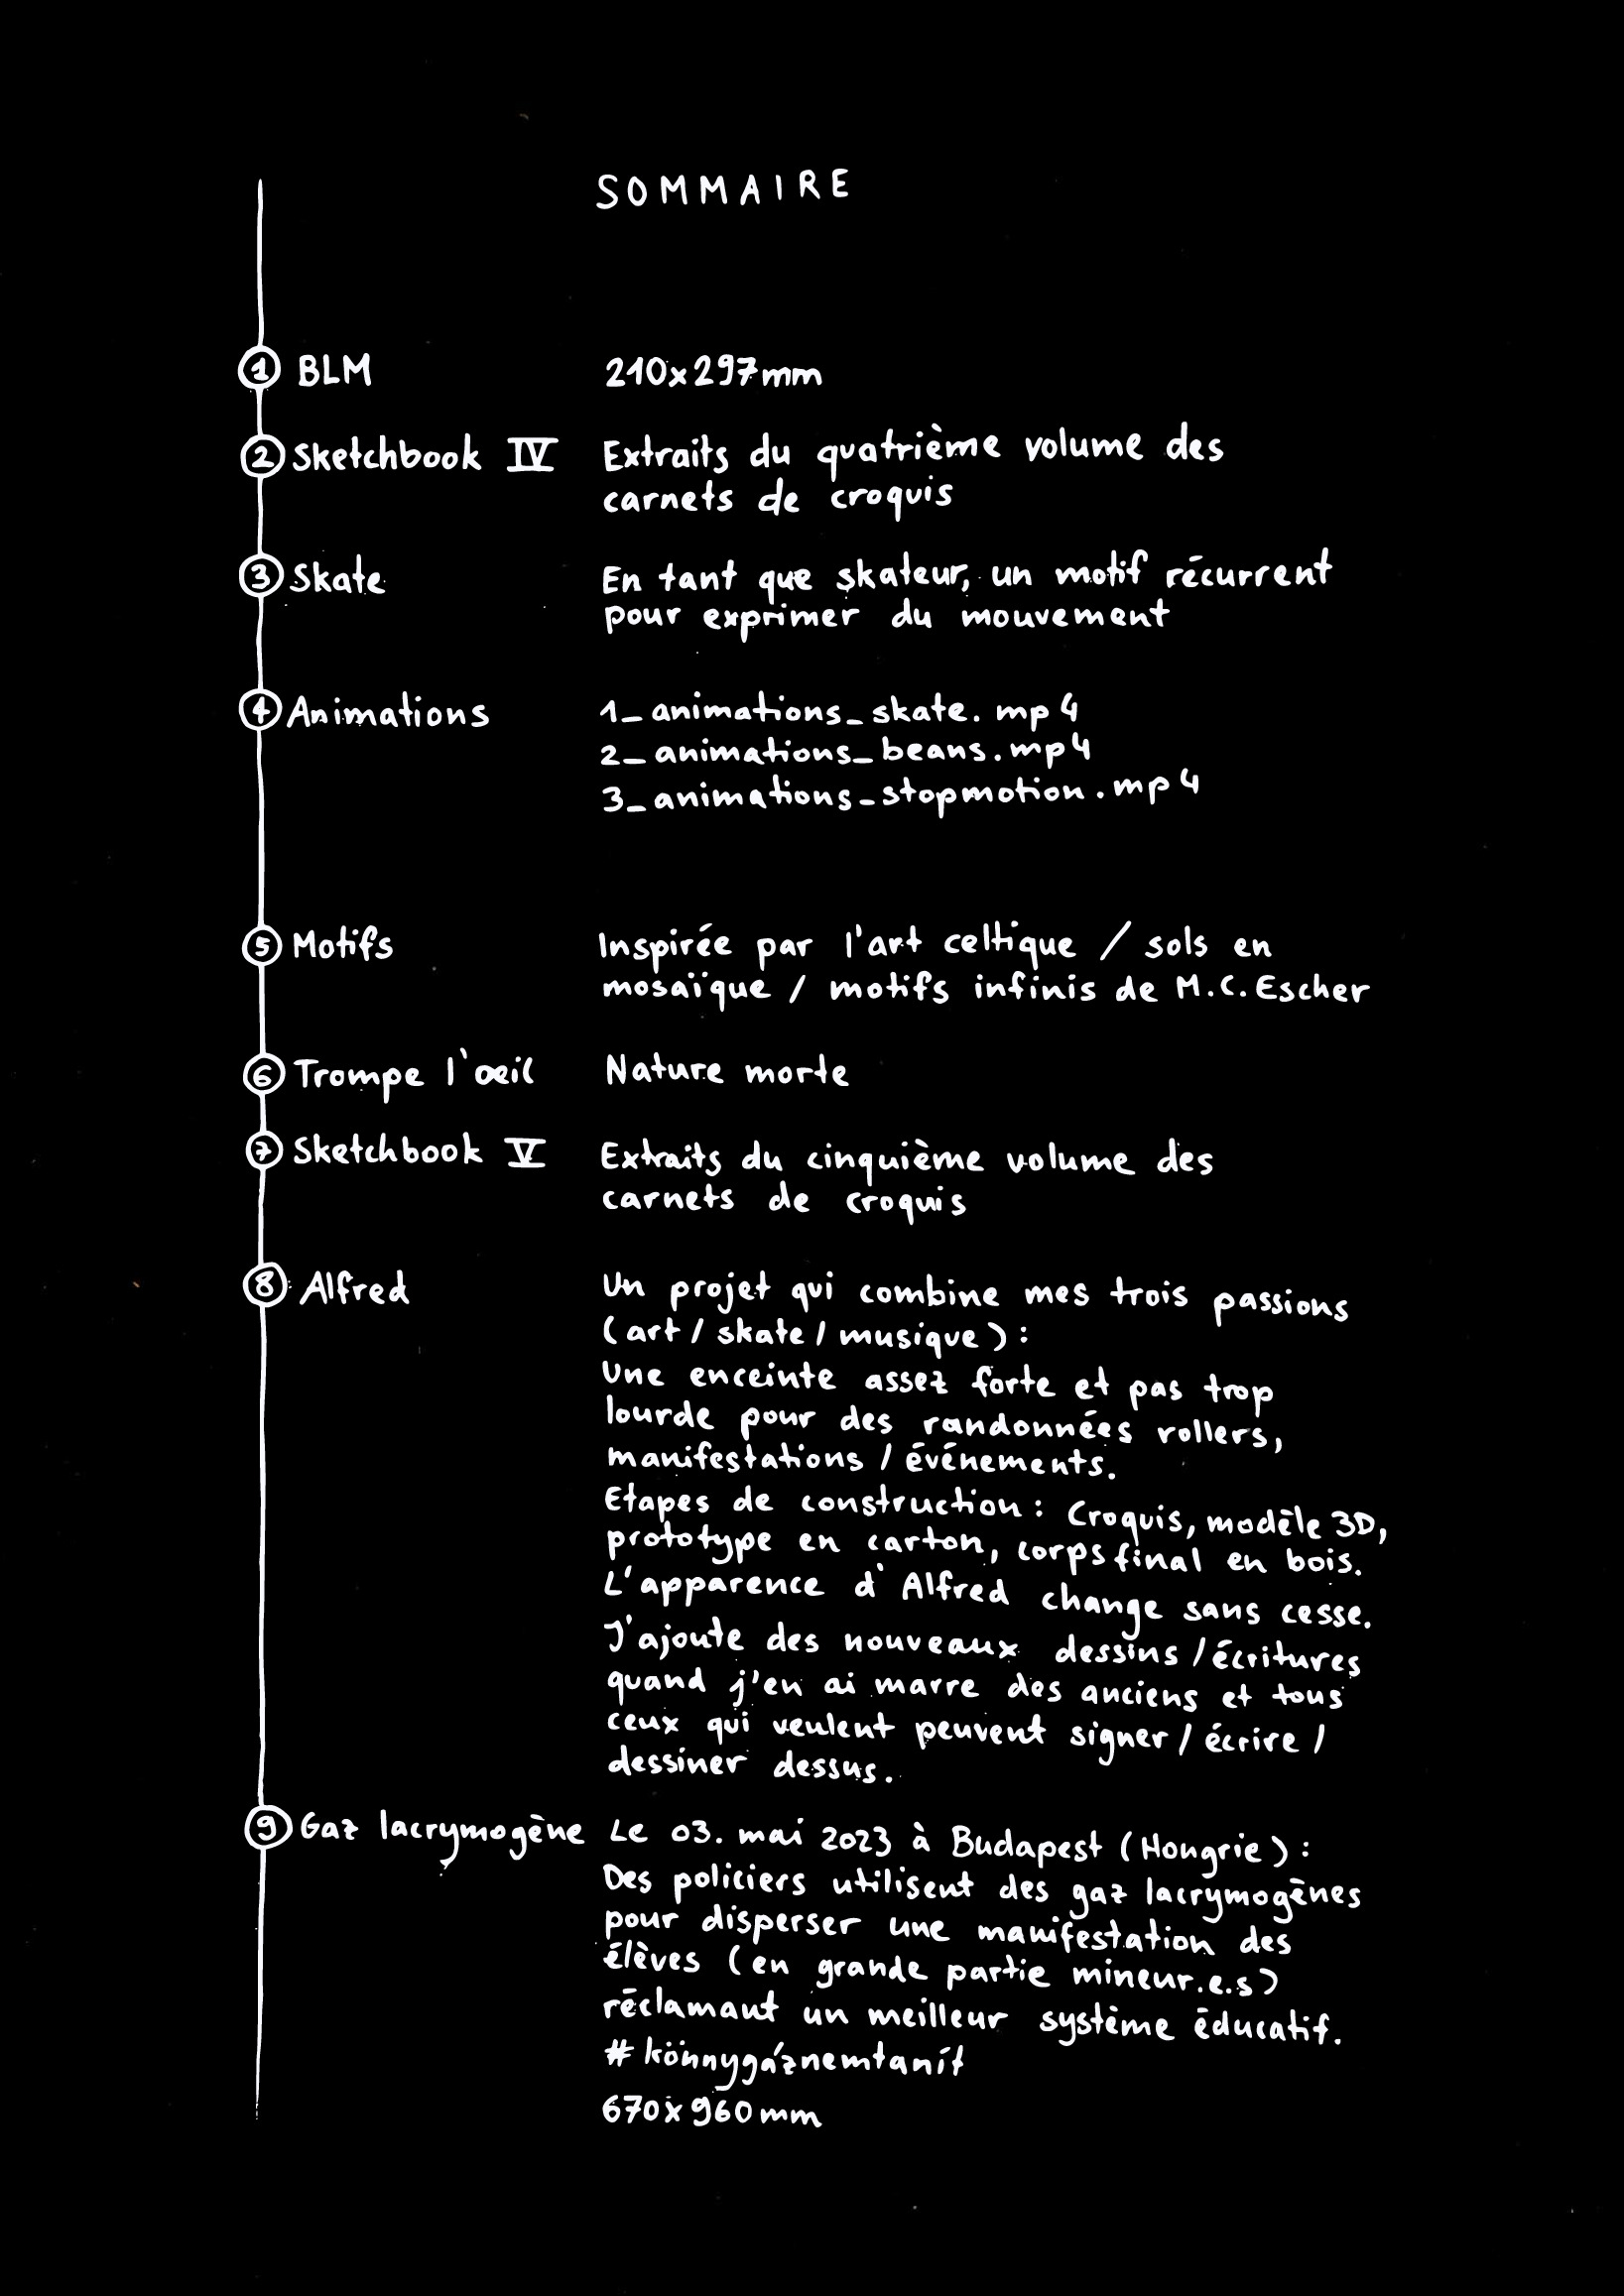 SOMMAIRE
1 BLM 210x297mm
2 Sketchbook IV Extraits du quatrième volume des
carnets de croquis
3 Skate En tant que skateur, un motif récurrent
pour exprimer du mouvement
4 Animations 1_animations_skate.mp4
2_animations_beans.mp4
3_animations_stopmotion.mp4
5 Motifs Inspirée par l'art celtique / sols en
mosaïque / motifs infinis de M.C.Escher
6 Trompe l'œil Nature morte
7 Sketchbook V Extraits du cinquième volume des
carnets de croquis
8 Alfred Un projet qui combine mes trois passions
(art / skate / musique) :
Une enceinte assez forte et pas trop
lourde pour des randonnées rollers,
manifestations / événements.
Etapes de construction : Croquis, modèle 3D,
prototype en carton, corps final en bois.
L'apparence d'Alfred change sans cesse.
J'ajoute des nouveaux dessins / écritures
quand j'en ai marre des anciens et tous
ceux qui veulent peuvent signer / écrire /
dessiner dessus.
9 Gaz lacrymogène Le 03. mai 2023 à Budapest (Hongrie) :
Des policiers utilisent des gaz lacrymogènes
pour disperser une manifestation des
élèves (en grande partie mineur.e.s)
réclamant un meilleur système éducatif.
#könnygáznemtanít
670x960mm